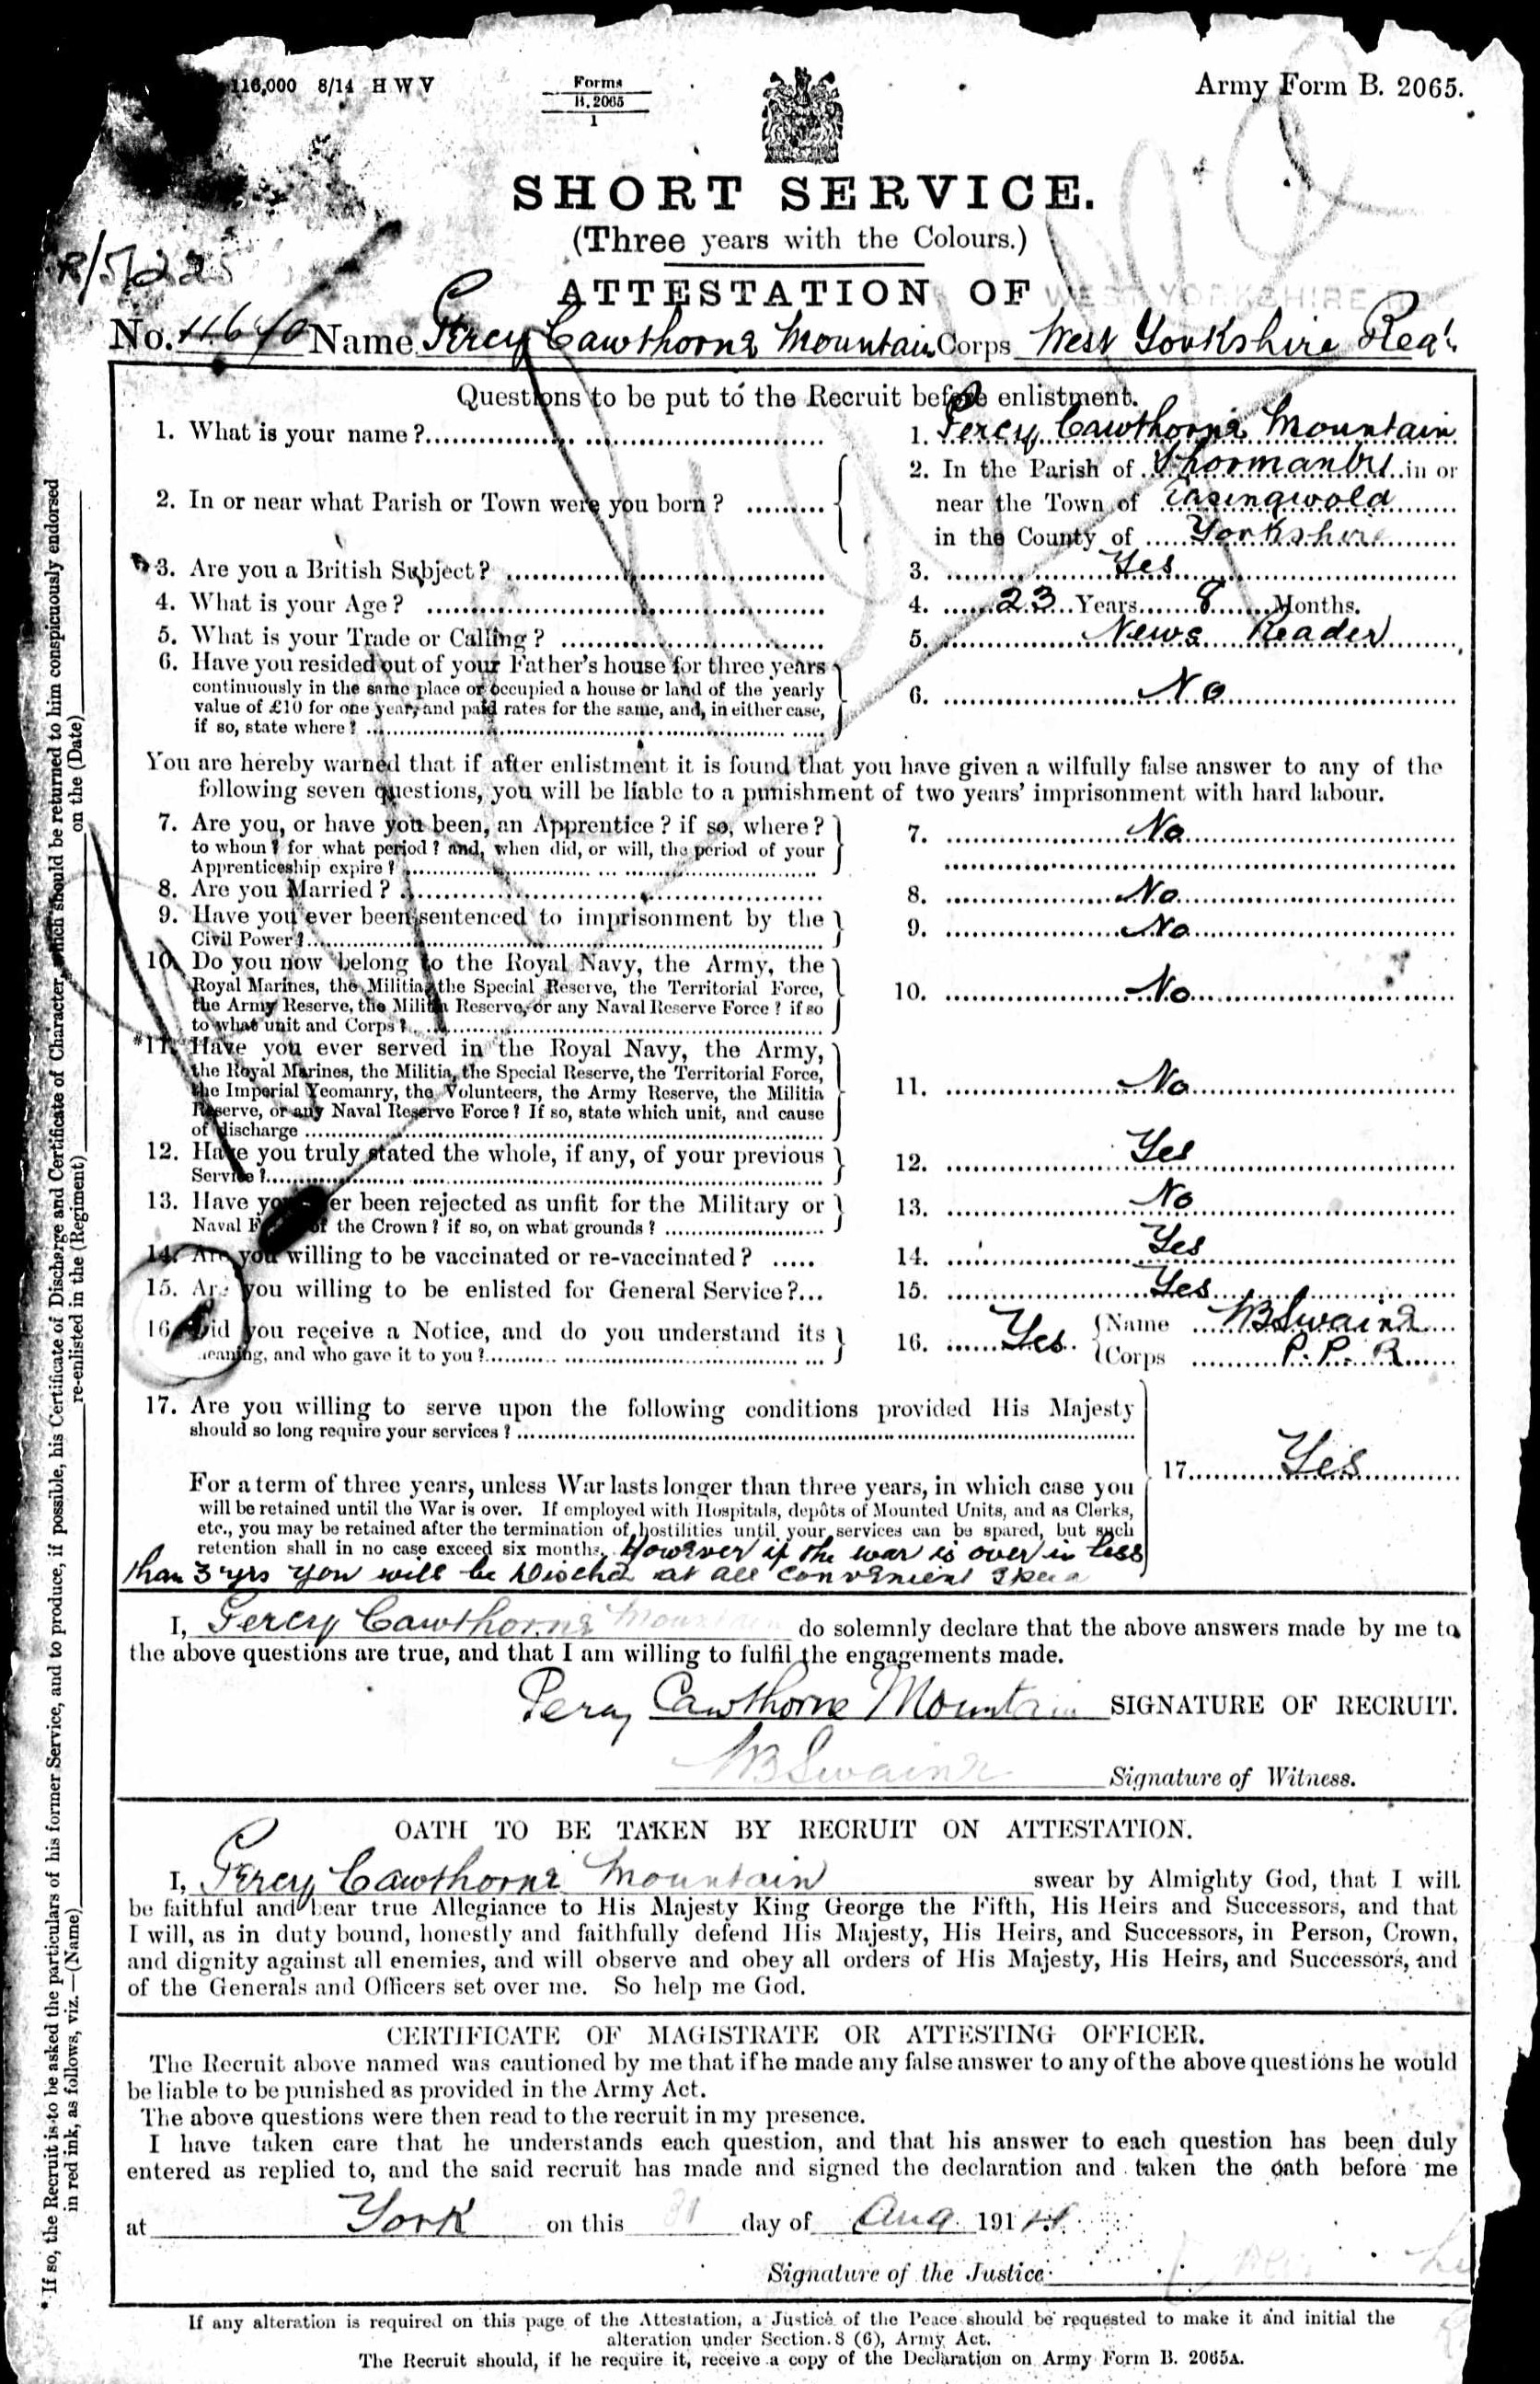 116,000 8/14 H W V
Forms
B. 2065
1
Army Form B. 2065.
SHORT SERVICE.
(Three years with the Colours.)
R/5/225
ATTESTATION OF
WEST YORKSHIRE R
No. 11640 Name Percy Cawthorne Mountain Corps West Yorkshire Regt.
Questions to be put to the Recruit before enlistment.
1. What is your name? 1. Percy Cawthorne Mountain
2. In or near what Parish or Town were you born? 2. In the Parish of Thormanby in or
near the Town of Easingwold
in the County of Yorkshire
3. Are you a British Subject? 3. Yes
4. What is your Age? 4. 23 Years 8 Months.
5. What is your Trade or Calling? 5. News Reader
6. Have you resided out of your Father's house for three years
continuously in the same place or occupied a house or land of the yearly
value of £10 for one year, and paid rates for the same, and, in either case,
if so, state where? 6. No
You are hereby warned that if after enlistment it is found that you have given a wilfully false answer to any of the
following seven questions, you will be liable to a punishment of two years' imprisonment with hard labour.
7. Are you, or have you been, an Apprentice? if so, where? 7. No
to whom? for what period? and, when did, or will, the period of your
Apprenticeship expire?
8. Are you Married? 8. No
9. Have you ever been sentenced to imprisonment by the
Civil Power? 9. No
10. Do you now belong to the Royal Navy, the Army, the
Royal Marines, the Militia, the Special Reserve, the Territorial Force,
the Army Reserve, the Militia Reserve, or any Naval Reserve Force? if so
to what unit and Corps? 10. No
*11. Have you ever served in the Royal Navy, the Army,
the Royal Marines, the Militia, the Special Reserve, the Territorial Force,
the Imperial Yeomanry, the Volunteers, the Army Reserve, the Militia
Reserve, or any Naval Reserve Force? If so, state which unit, and cause
of discharge 11. No
12. Have you truly stated the whole, if any, of your previous
Service? 12. Yes
13. Have you ever been rejected as unfit for the Military or
Naval F of the Crown? if so, on what grounds? 13. No
14. Are you willing to be vaccinated or re-vaccinated? 14. Yes
15. Are you willing to be enlisted for General Service? 15. Yes
16. Did you receive a Notice, and do you understand its
meaning, and who gave it to you? 16. Yes Name WB Swaine
Corps P. P. R
17. Are you willing to serve upon the following conditions provided His Majesty
should so long require your services?
17. Yes
For a term of three years, unless War lasts longer than three years, in which case you
will be retained until the War is over. If employed with Hospitals, depôts of Mounted Units, and as Clerks,
etc., you may be retained after the termination of hostilities until your services can be spared, but such
retention shall in no case exceed six months. However if the war is over in less
than 3 yrs you will be Dischd at all convenient speed
I, Percy Cawthorne Mountain do solemnly declare that the above answers made by me to
the above questions are true, and that I am willing to fulfil the engagements made.
Percy Cawthorne Mountain SIGNATURE OF RECRUIT.
WB Swaine Signature of Witness.
OATH TO BE TAKEN BY RECRUIT ON ATTESTATION.
I, Percy Cawthorne Mountain swear by Almighty God, that I will
be faithful and bear true Allegiance to His Majesty King George the Fifth, His Heirs and Successors, and that
I will, as in duty bound, honestly and faithfully defend His Majesty, His Heirs, and Successors, in Person, Crown,
and dignity against all enemies, and will observe and obey all orders of His Majesty, His Heirs, and Successors, and
of the Generals and Officers set over me. So help me God.
CERTIFICATE OF MAGISTRATE OR ATTESTING OFFICER.
The Recruit above named was cautioned by me that if he made any false answer to any of the above questions he would
be liable to be punished as provided in the Army Act.
The above questions were then read to the recruit in my presence.
I have taken care that he understands each question, and that his answer to each question has been duly
entered as replied to, and the said recruit has made and signed the declaration and taken the oath before me
at York on this 31 day of Aug 1914
Signature of the Justice
If any alteration is required on this page of the Attestation, a Justice of the Peace should be requested to make it and initial the
alteration under Section 8 (6), Army Act.
The Recruit should, if he require it, receive a copy of the Declaration on Army Form B. 2065A.
* If so, the Recruit is to be asked the particulars of his former Service, and to produce, if possible, his Certificate of Discharge and Certificate of Character, which should be returned to him conspicuously endorsed
in red ink, as follows, viz.—(Name) re-enlisted in the (Regiment) on the (Date)